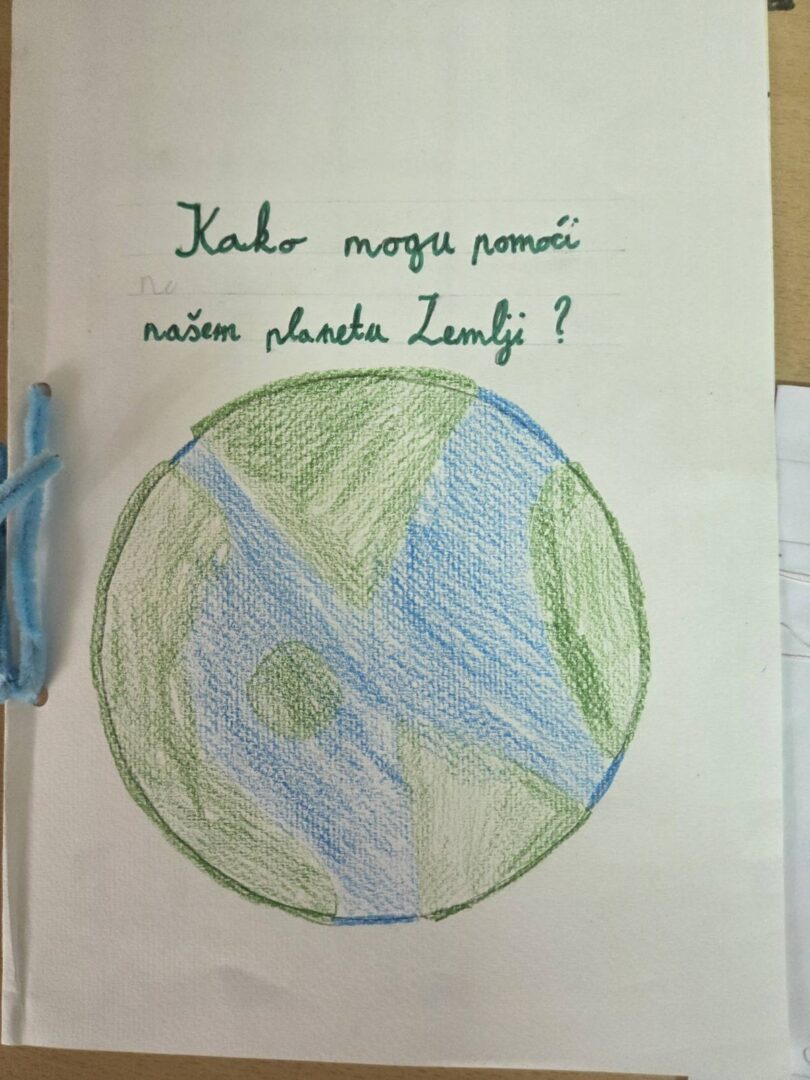 Kako mogu pomoći
na
našem planetu Zemlji ?